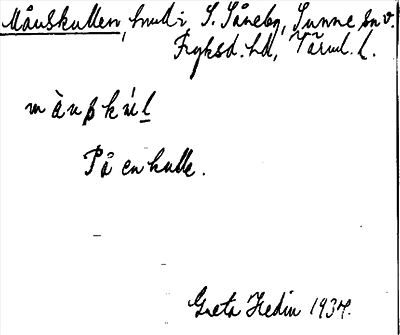 Månskullen, hmd i S. Såneby, Sunne sn v.
Fryksd. hd, Värml. l.
På en kulle.
Greta Hedin 1937.